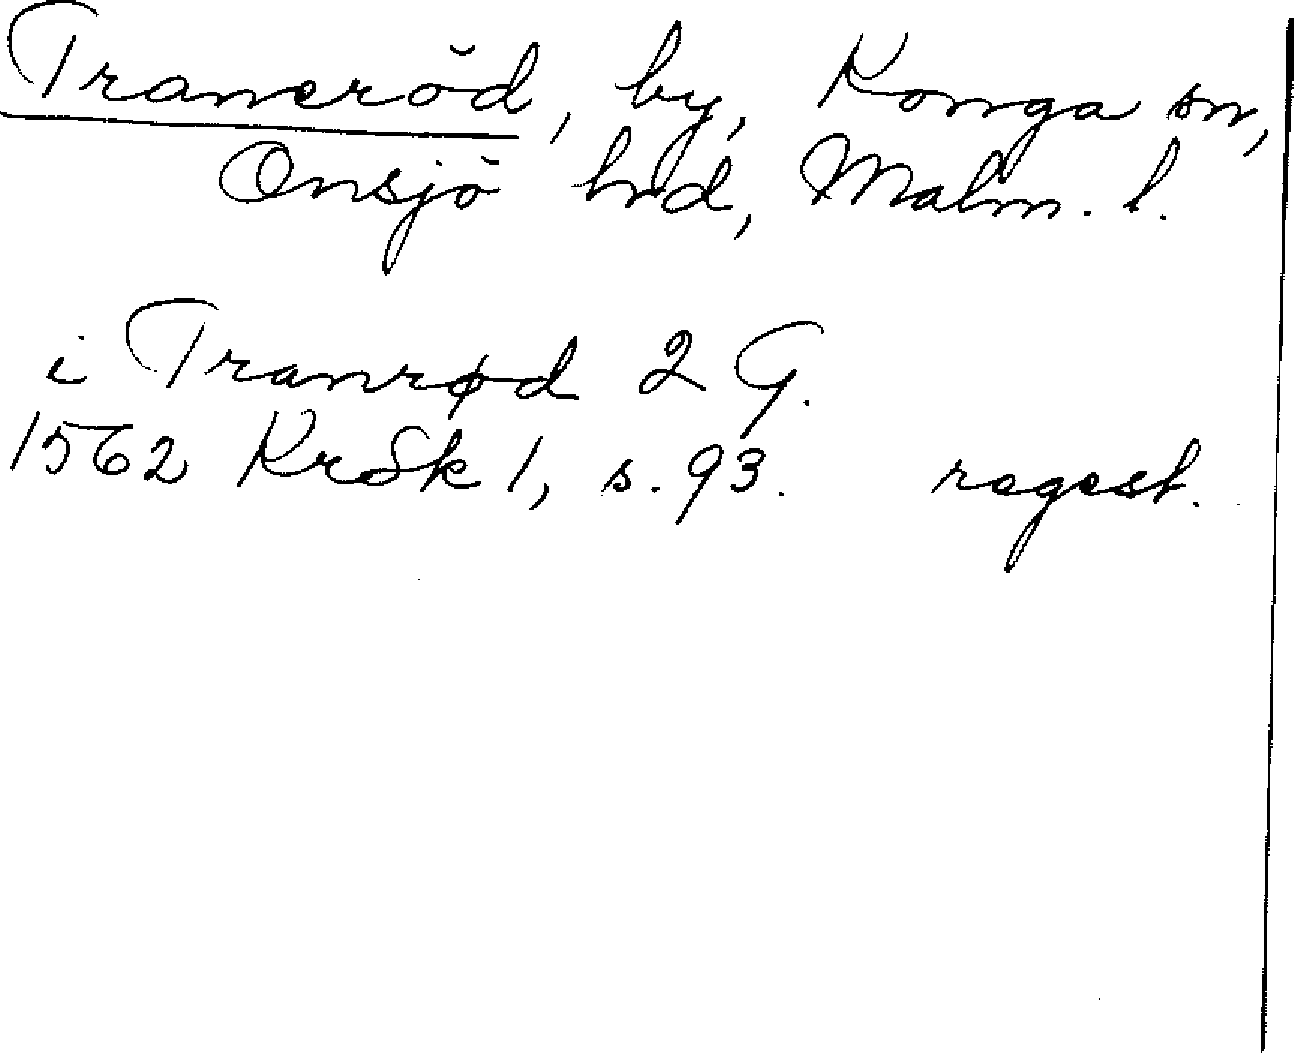 Traneröd, by, Konga sn,
Onsjö hrd, Malm. l.
i Tranrød 2 G.
1562 KrSk 1, s. 93. regest.